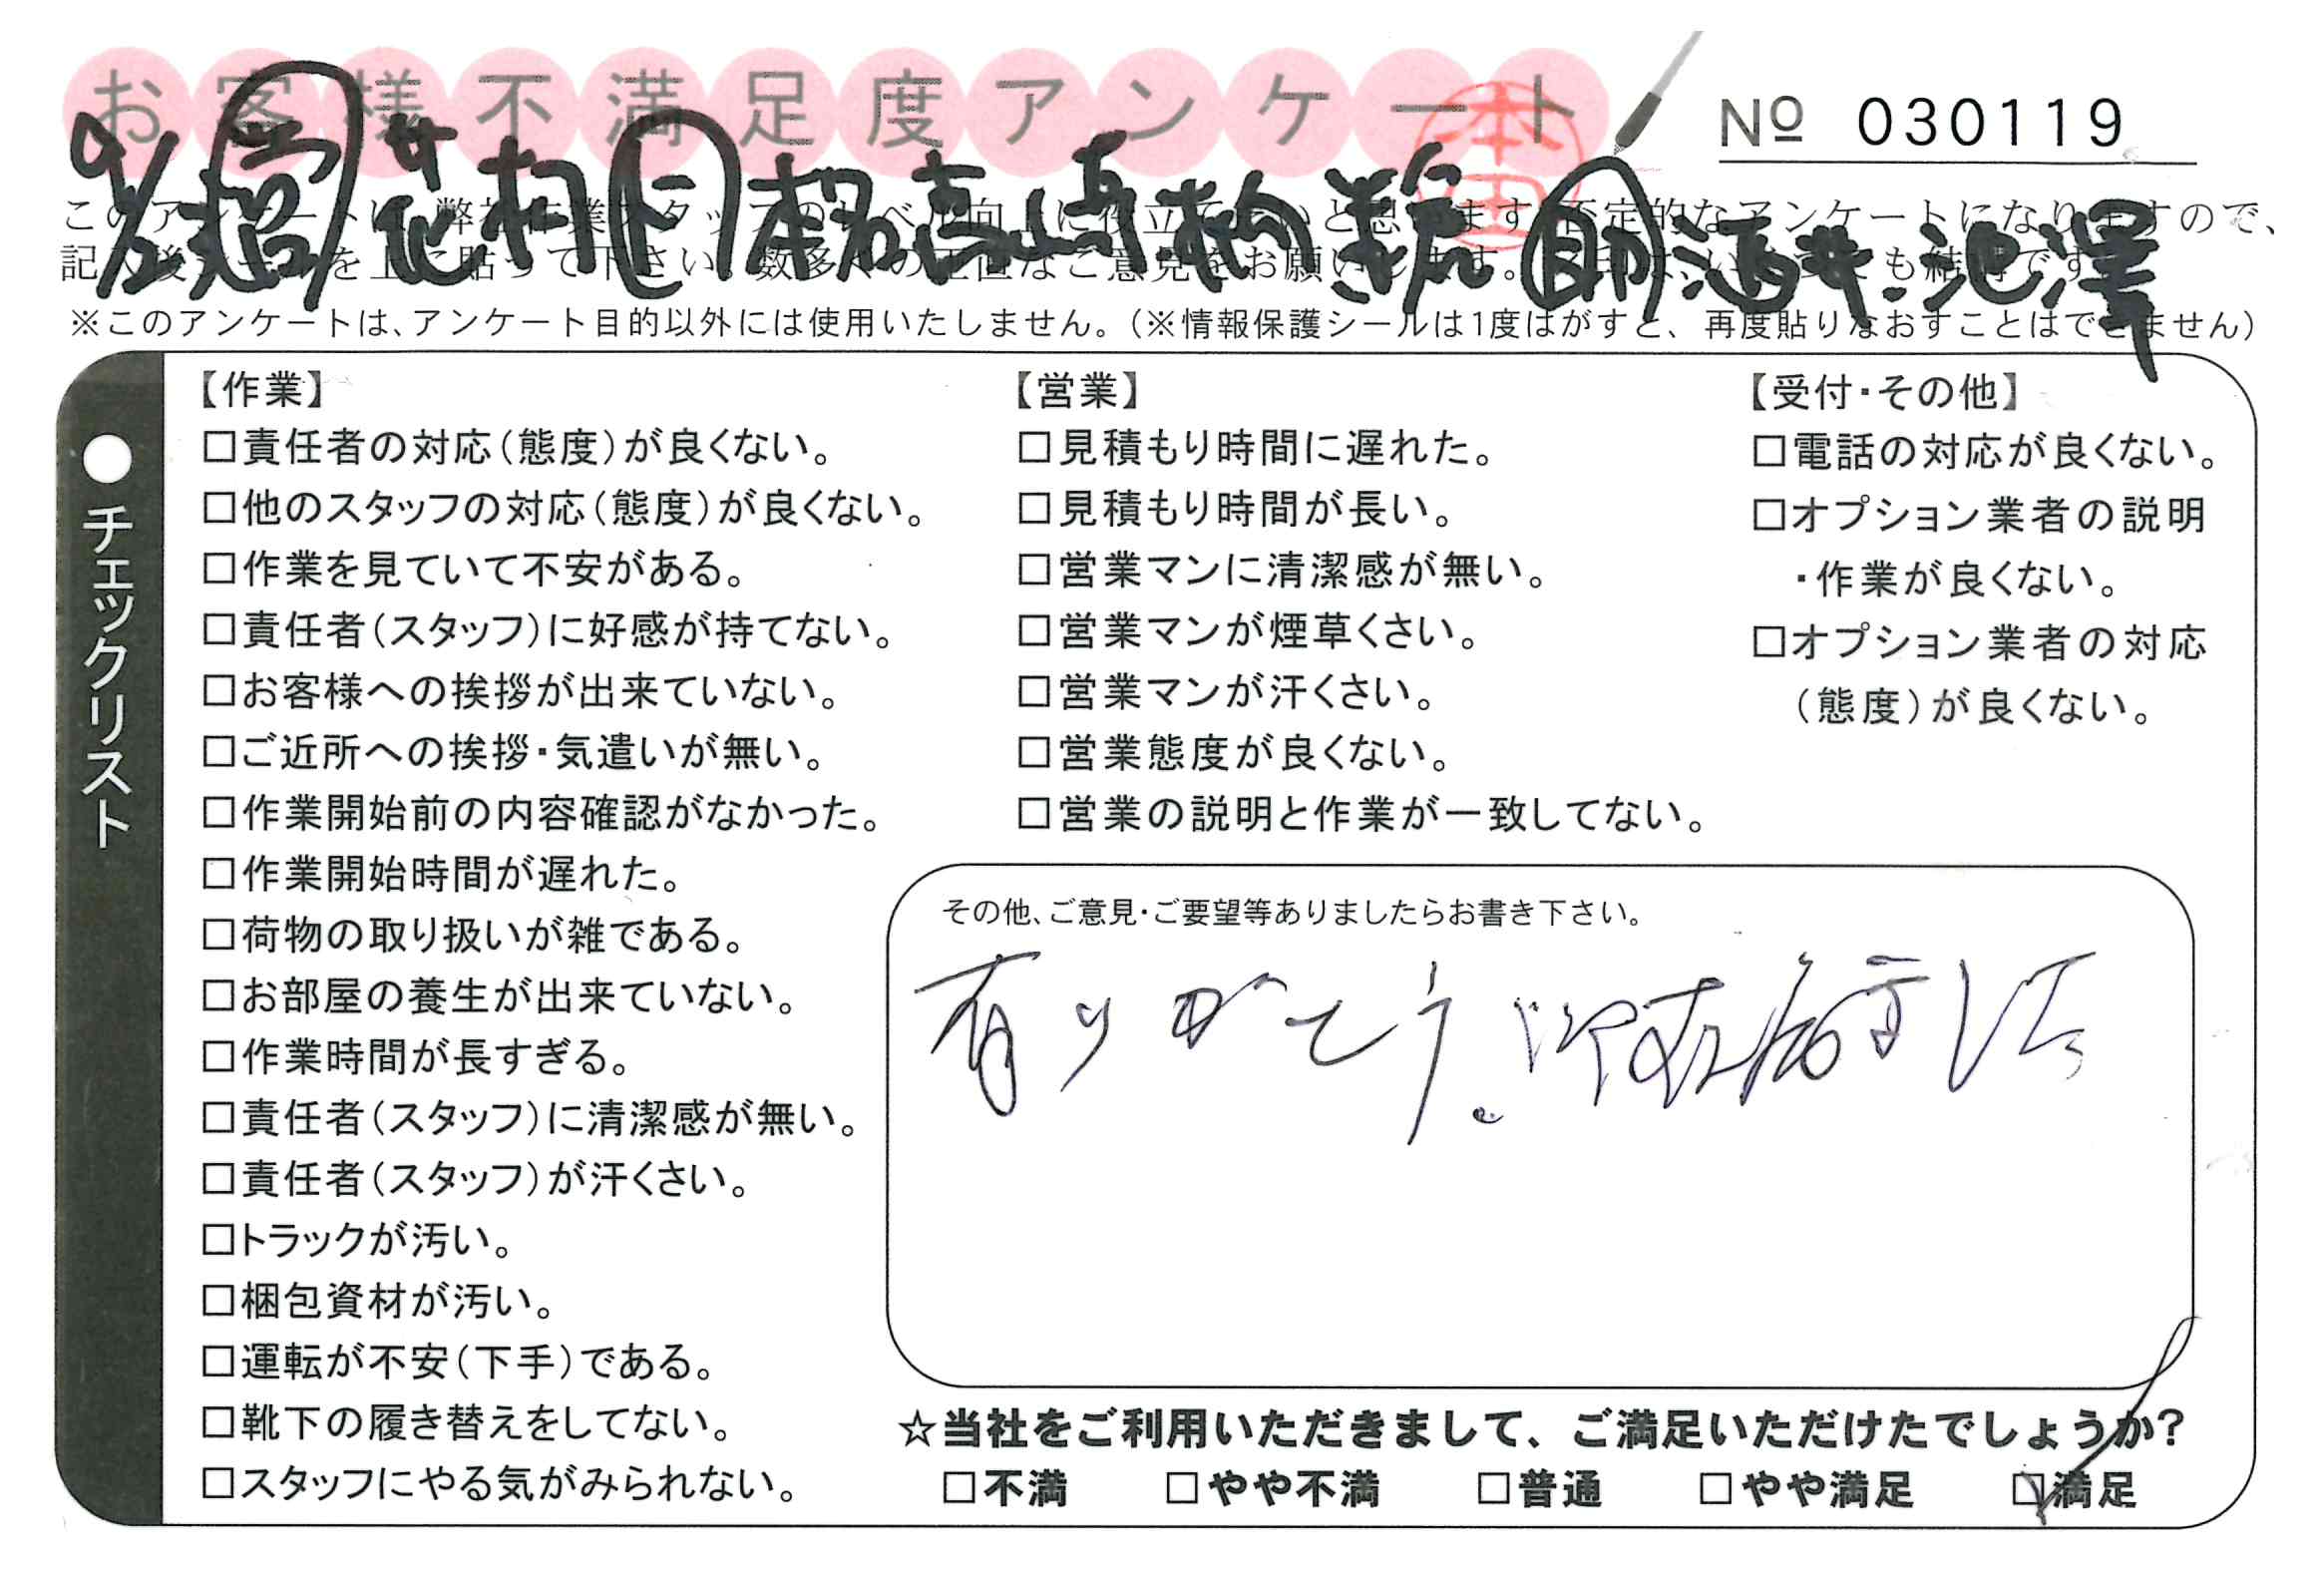 お客様不満足度アンケート
№ 030119
本田
※このアンケートは、アンケート目的以外には使用いたしません。（※情報保護シールは1度はがすと、再度貼りなおすことはできません）
●チェックリスト
【作業】
□責任者の対応（態度）が良くない。
□他のスタッフの対応（態度）が良くない。
□作業を見ていて不安がある。
□責任者（スタッフ）に好感が持てない。
□お客様への挨拶が出来ていない。
□ご近所への挨拶・気遣いが無い。
□作業開始前の内容確認がなかった。
□作業開始時間が遅れた。
□荷物の取り扱いが雑である。
□お部屋の養生が出来ていない。
□作業時間が長すぎる。
□責任者（スタッフ）に清潔感が無い。
□責任者（スタッフ）が汗くさい。
□トラックが汚い。
□梱包資材が汚い。
□運転が不安（下手）である。
□靴下の履き替えをしてない。
□スタッフにやる気がみられない。
【営業】
□見積もり時間に遅れた。
□見積もり時間が長い。
□営業マンに清潔感が無い。
□営業マンが煙草くさい。
□営業マンが汗くさい。
□営業態度が良くない。
□営業の説明と作業が一致してない。
【受付・その他】
□電話の対応が良くない。
□オプション業者の説明
・作業が良くない。
□オプション業者の対応
（態度）が良くない。
その他、ご意見・ご要望等ありましたらお書き下さい。
有りがとう。
☆当社をご利用いただきまして、ご満足いただけたでしょうか？
□不満 □やや不満 □普通 □やや満足 ☑満足